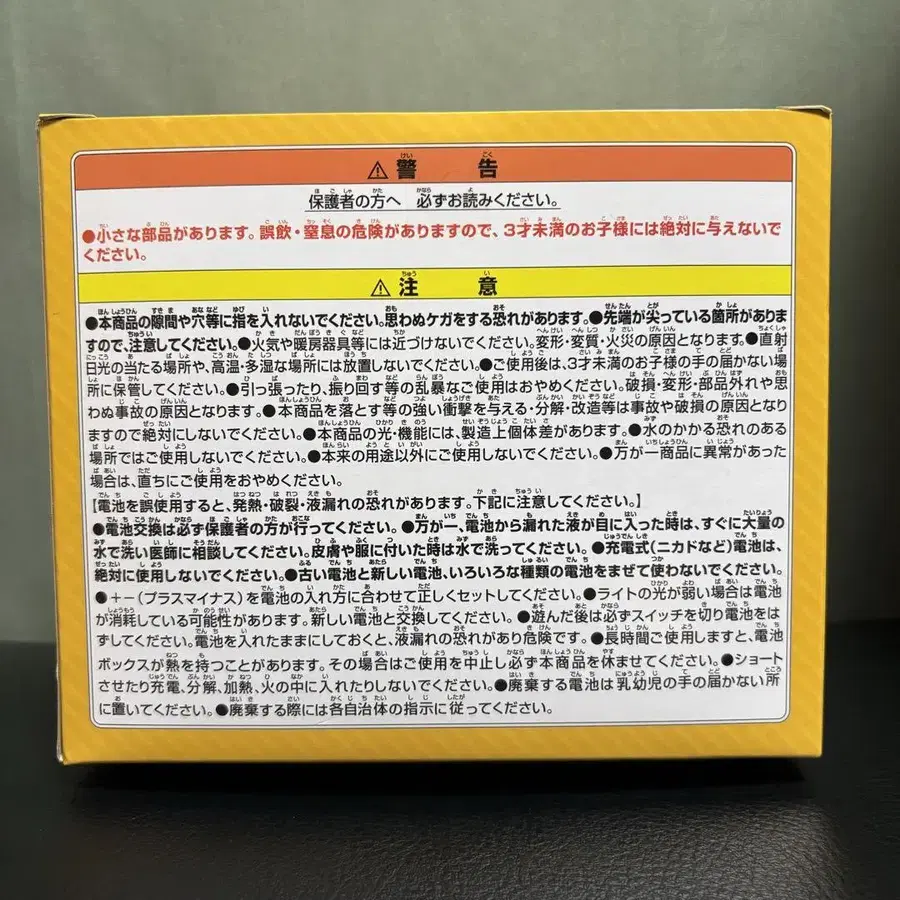 ⚠警告
保護者の方へ 必ずお読みください。
●小さな部品があります。誤飲・窒息の危険がありますので、3才未満のお子様には絶対に与えないで
ください。
⚠注意
●本商品の隙間や穴等に指を入れないでください。思わぬケガをする恐れがあります。●先端が尖っている箇所がありま
すので、注意してください。●火気や暖房器具等には近づけないでください。変形・変質・火災の原因となります。●直射
日光の当たる場所や、高温・多湿な場所には放置しないでください。●ご使用後は、3才未満のお子様の手の届かない場
所に保管してください。●引っ張ったり、振り回す等の乱暴なご使用はおやめください。破損・変形・部品外れや思
わぬ事故の原因となります。●本商品を落とす等の強い衝撃を与える・分解・改造等は事故や破損の原因となり
ますので絶対にしないでください。●本商品の光・機能には、製造上個体差があります。●水のかかる恐れのある
場所ではご使用しないでください。●本来の用途以外にご使用しないでください。●万が一商品に異常があった
場合は、直ちにご使用をおやめください。
【電池を誤使用すると、発熱・破裂・液漏れの恐れがあります。下記に注意してください。】
●電池交換は必ず保護者の方が行ってください。●万が一、電池から漏れた液が目に入った時は、すぐに大量の
水で洗い医師に相談してください。皮膚や服に付いた時は水で洗ってください。●充電式(ニカドなど)電池は、
絶対に使用しないでください。●古い電池と新しい電池、いろいろな種類の電池をまぜて使わないでください。
●+−(プラスマイナス)を電池の入れ方に合わせて正しくセットしてください。●ライトの光が弱い場合は電池
が消耗している可能性があります。新しい電池と交換してください。●遊んだ後は必ずスイッチを切り電池をは
ずしてください。電池を入れたままにしておくと、液漏れの恐れがあり危険です。●長時間ご使用しますと、電池
ボックスが熱を持つことがあります。その場合はご使用を中止し必ず本商品を休ませてください。●ショート
させたり充電、分解、加熱、火の中に入れたりしないでください。●廃棄する電池は乳幼児の手の届かない所
に置いてください。●廃棄する際には各自治体の指示に従ってください。